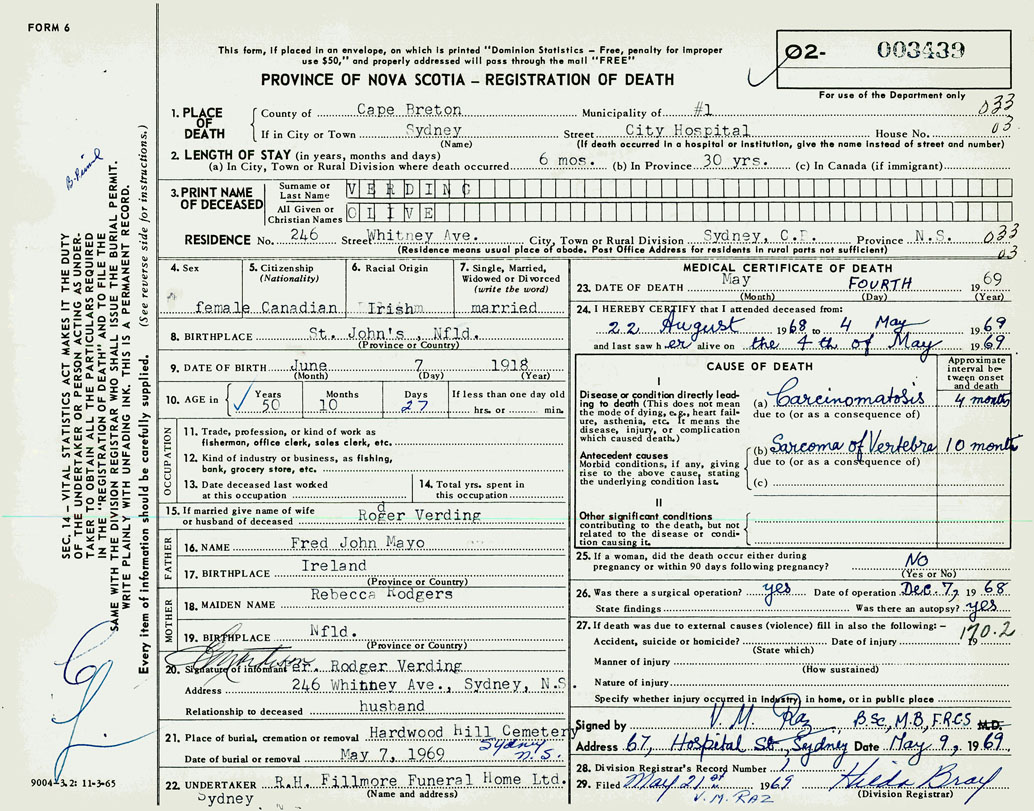 FORM 6
This form, if placed in an envelope, on which is printed "Dominion Statistics – Free, penalty for improper
use $50," and properly addressed will pass through the mail "FREE"
PROVINCE OF NOVA SCOTIA – REGISTRATION OF DEATH
02- 003439
For use of the Department only
033
03
1. PLACE OF DEATH
County of Cape Breton Municipality of #1
If in City or Town Sydney Street City Hospital House No.
(Name) (If death occurred in a hospital or institution, give the name instead of street and number)
2. LENGTH OF STAY (in years, months and days)
(a) In City, Town or Rural Division where death occurred 6 mos. (b) In Province 30 yrs. (c) In Canada (if immigrant)
3. PRINT NAME OF DECEASED
Surname or Last Name VERDING
All Given or Christian Names OLIVE
RESIDENCE No. 246 Street Whitney Ave. City, Town or Rural Division Sydney, C.B. Province N.S. 033
(Residence means usual place of abode. Post Office Address for residents in rural parts not sufficient) 03
4. Sex
female
5. Citizenship (Nationality)
Canadian
6. Racial Origin
Irish
7. Single, Married, Widowed or Divorced (write the word)
married
8. BIRTHPLACE St. John's, Nfld.
(Province or Country)
9. DATE OF BIRTH June 7 1918
(Month) (Day) (Year)
10. AGE in Years Months Days If less than one day old
50 10 27 hrs. or min.
OCCUPATION
11. Trade, profession, or kind of work as
fisherman, office clerk, sales clerk, etc.
12. Kind of industry or business, as fishing,
bank, grocery store, etc.
13. Date deceased last worked
at this occupation
14. Total yrs. spent in
this occupation
15. If married give name of wife
or husband of deceased Rodger Verding
FATHER
16. NAME Fred John Mayo
17. BIRTHPLACE Ireland
(Province or Country)
MOTHER
18. MAIDEN NAME Rebecca Rodgers
19. BIRTHPLACE Nfld.
(Province or Country)
20. Signature of informant Rodger Verding
Address 246 Whitney Ave., Sydney, N.S.
Relationship to deceased husband
21. Place of burial, cremation or removal Hardwood hill Cemetery
Sydney N.S.
Date of burial or removal May 7, 1969
22. UNDERTAKER R.H. Fillmore Funeral Home Ltd.
(Name and address)
Sydney
MEDICAL CERTIFICATE OF DEATH
23. DATE OF DEATH May FOURTH 1969
(Month) (Day) (Year)
24. I HEREBY CERTIFY that I attended deceased from:
22 August 1968 to 4 May 1969
and last saw her alive on the 4th of May 1969
CAUSE OF DEATH
Approximate interval between onset and death
I
Disease or condition directly leading to death (This does not mean
the mode of dying, e.g., heart failure, asthenia, etc. It means the
disease, injury, or complication
which caused death.)
(a) Carcinomatosis 4 month
due to (or as a consequence of)
Antecedent causes
Morbid conditions, if any, giving
rise to the above cause, stating
the underlying condition last.
(b) Sarcoma of Vertebra 10 month
due to (or as a consequence of)
(c)
II
Other significant conditions
contributing to the death, but not
related to the disease or condition causing it.
25. If a woman, did the death occur either during
pregnancy or within 90 days following pregnancy? NO
(Yes or No)
26. Was there a surgical operation? yes Date of operation Dec. 7, 1968
State findings Was there an autopsy? yes
27. If death was due to external causes (violence) fill in also the following:–
170.2
Accident, suicide or homicide? Date of injury 19
(State which)
Manner of injury
(How sustained)
Nature of injury
Specify whether injury occurred in industry, in home, or in public place
Signed by V. M. Raz BSc, M.B, F.R.C.S M.D.
Address 67, Hospital St Sydney Date May 9, 1969
28. Division Registrar's Record Number
29. Filed May 21st 1969 Hilda Bray
(Division Registrar)
V. M. RAZ
SEC. 14 – VITAL STATISTICS ACT MAKES IT THE DUTY
OF THE UNDERTAKER OR PERSON ACTING AS UNDER-
TAKER TO OBTAIN ALL THE PARTICULARS REQUIRED
IN THE "REGISTRATION OF DEATH" AND TO FILE THE
SAME WITH THE DIVISION REGISTRAR WHO SHALL ISSUE THE BURIAL PERMIT.
WRITE PLAINLY WITH UNFADING INK. THIS IS A PERMANENT RECORD.
Every item of information should be carefully supplied. (See reverse side for instructions.)
9004-3.2: 11-3-65